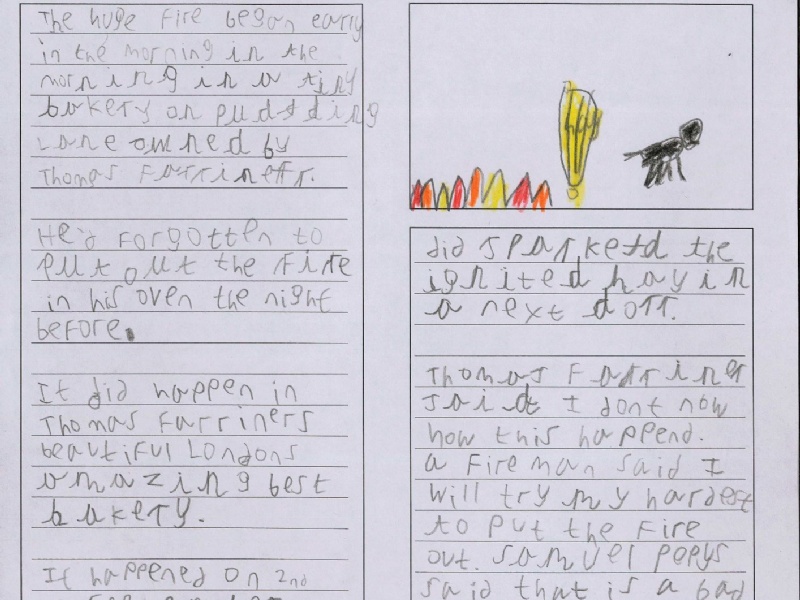 The huge fire began early
in the morning in the
morning in a tiny
bakery on pudding
Lane owned by
Thomas Farriner.
He'd Forgotten to
put out the fire
in his oven the night
before.
It did happen in
Thomas Farriners
beautiful Londons
amazing best
bakery.
It happened on 2nd
hay
did sparked the
ignited hay in
a next dorr.
Thomas Farriner
said I dont now
how this happend.
a Fireman said I
will try my hardest
to put the fire
out. Samuel Pepys
said that is a bad